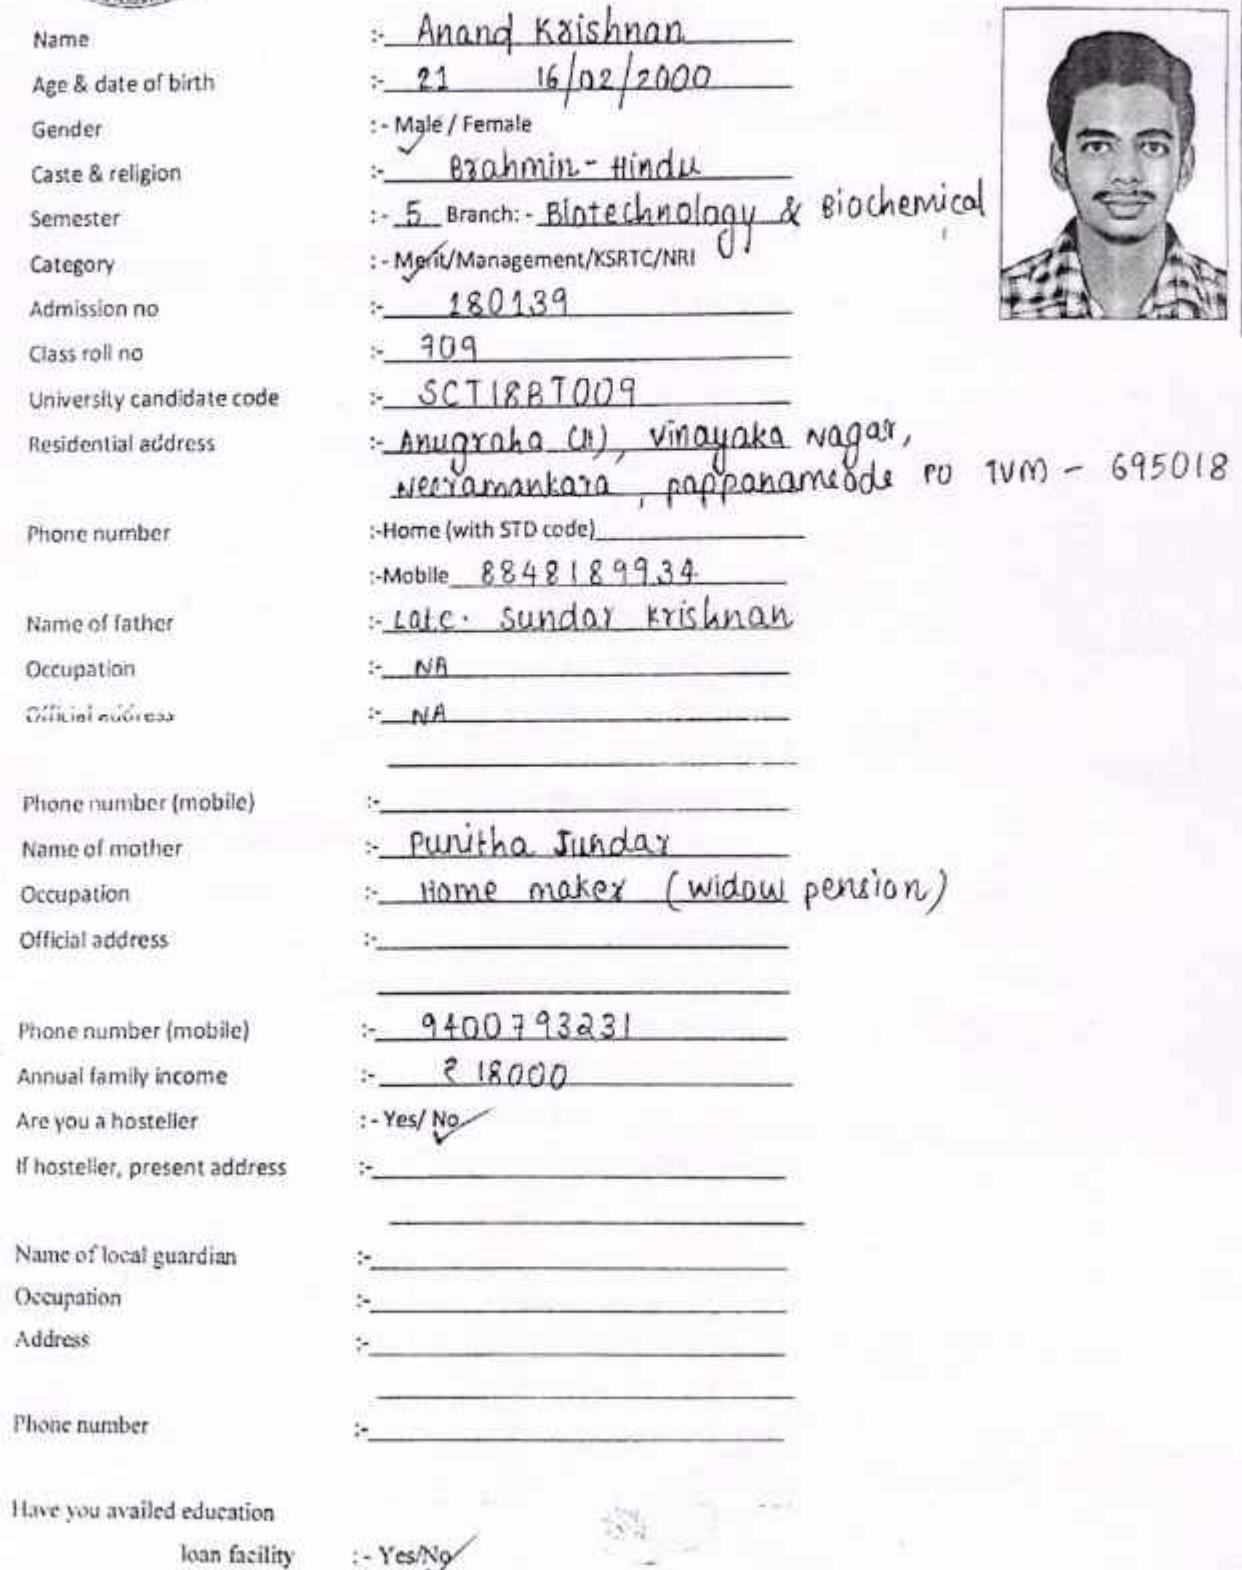 Name :- Anand Krishnan
Age & date of birth :- 21 16/02/2000
Gender :- Male / Female
Caste & religion :- Brahmin - Hindu
Semester :- 5 Branch: - Biotechnology & Biochemical
Category :- Merit/Management/KSRTC/NRI
Admission no :- 180139
Class roll no :- 709
University candidate code :- SCT18BT009
Residential address :- Anugraha (H), Vinayaka Nagar,
Neeramankara, pappanamcode PO TVM - 695018
Phone number :-Home (with STD code)
:-Mobile 8848189934
Name of father :- Late. Sundar Krishnan
Occupation :- NA
Official address :- NA
Phone number (mobile) :-
Name of mother :- Punitha Sundar
Occupation :- Home maker (widow pension)
Official address :-
Phone number (mobile) :- 9400793231
Annual family income :- ₹ 18000
Are you a hosteller :- Yes/ No
If hosteller, present address :-
Name of local guardian :-
Occupation :-
Address :-
Phone number :-
Have you availed education
loan facility :- Yes/No